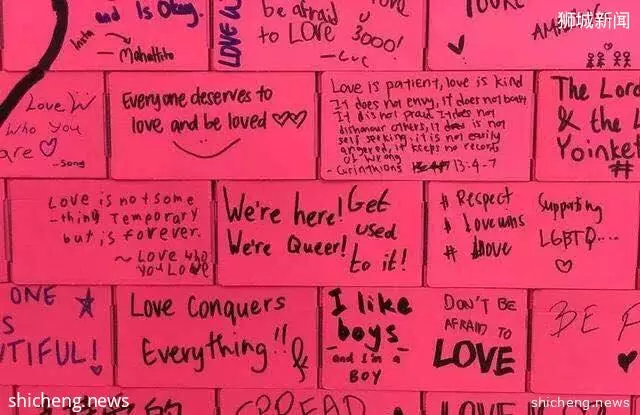 狮城新闻
and Is Okay.
Insta
Mahattito
LOVE
be afraid
to LOVE
3000!
- Luc
YOU'RE
Love
Who You
are
- Song
Everyone deserves to
love and be loved
Love is patient, love is kind
It does not envy, it does not boast
It is not proud. It does not
dishonour others, it is not
self seeking, it is not easily
angered, it keeps no records
of wrong
- Corinthians 13:4-7
The Lord
& the L
Yoinket
##
Love is not some
-thing Temporary
but is forever.
~ Love who
you Love
We're here!
We're Queer!
Get
used
to it!
# Respect
# Lovewins
# Love
Supporting
LGBTQ....
ONE
S
UTIFUL!
Love Conquers
Everything!!
I like
boys
- and I'm a -
BOY
DON'T BE
AFRAID TO
LOVE
BE F
SPREAD
LOVE
shicheng.news
shicheng.news